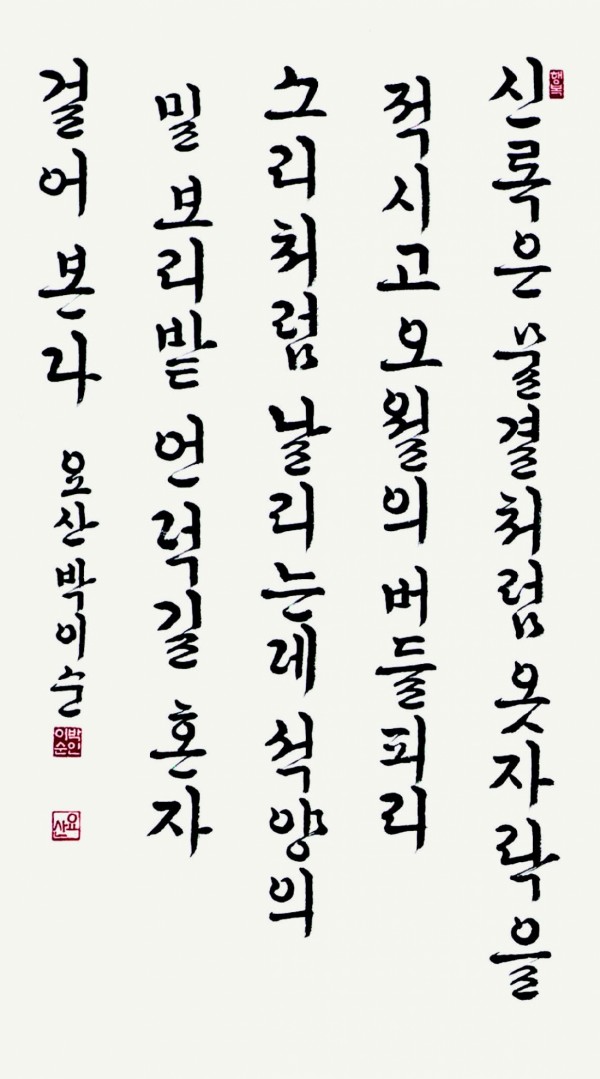 행복
신록은 물결처럼 옷자락을
적시고 오월의 버들피리
소리처럼 날리는데 석양의
밀 보리밭 언덕길 혼자
걸어 본다 요산 박이순
박인
이순
요산